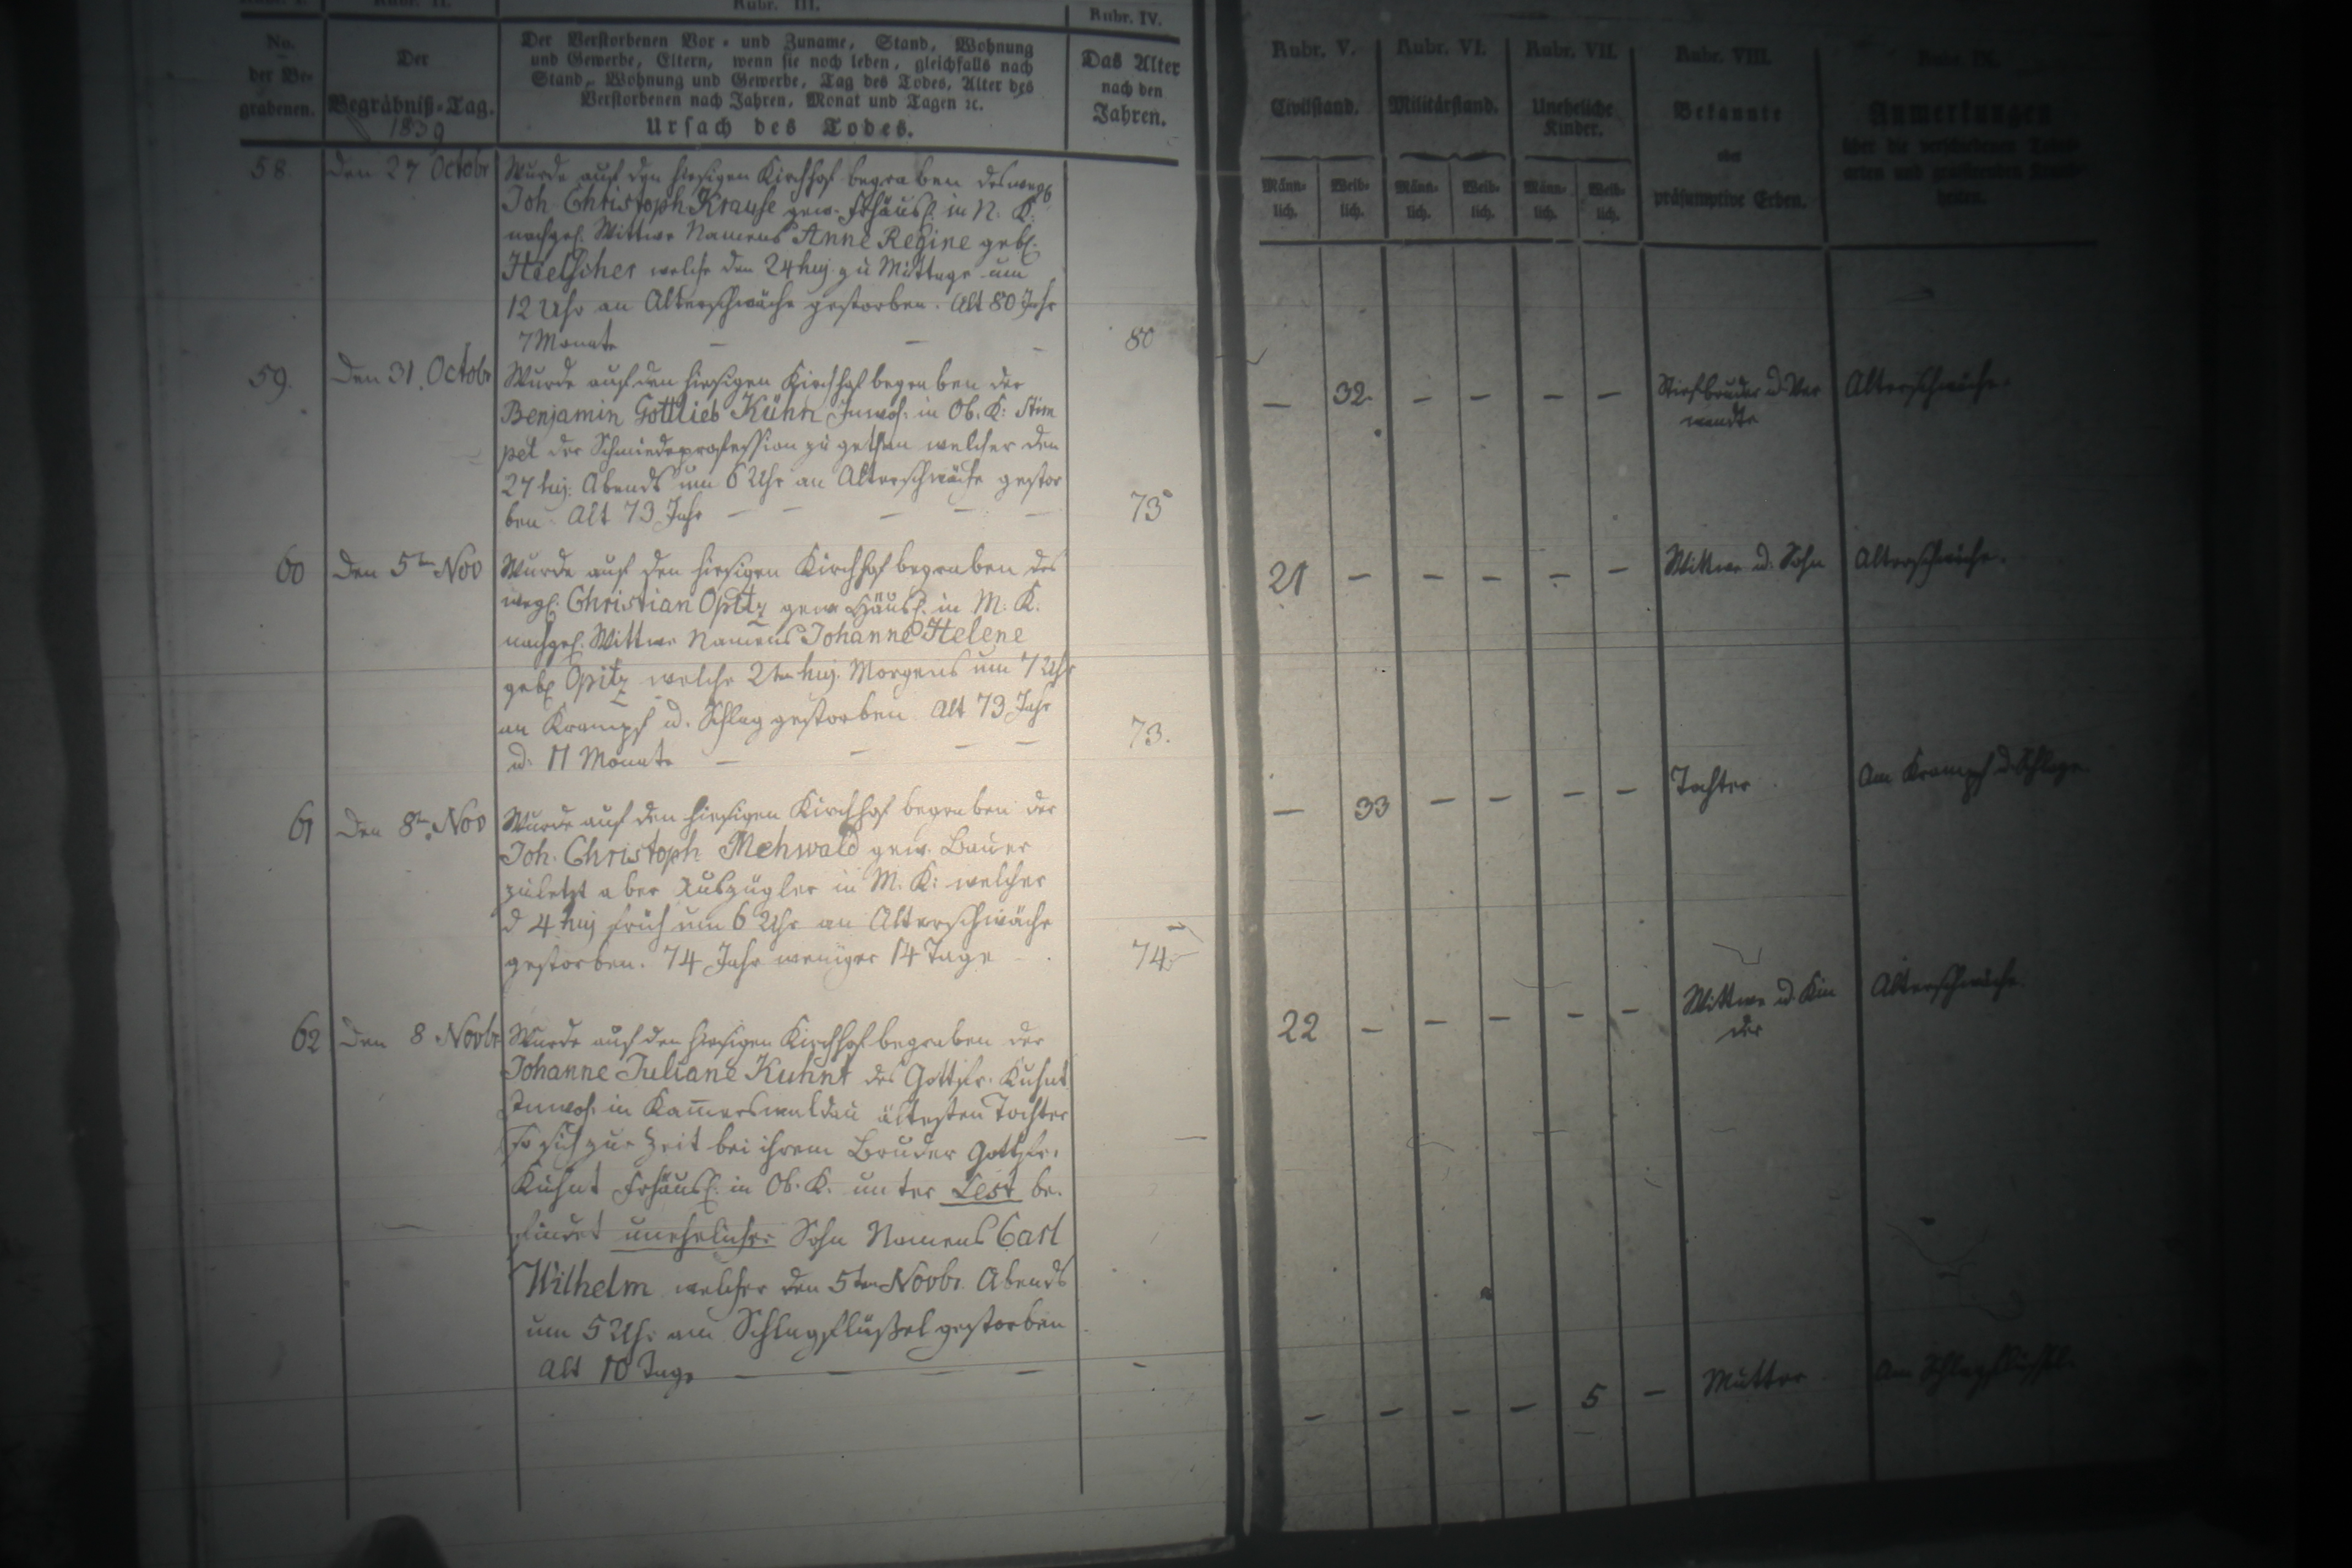 Rubr. III.
Rubr. IV.
No. der Begrabenen.
Der Begräbniß-Tag.
1839
Der Verstorbenen Vor- und Zuname, Stand, Wohnung
und Gewerbe, Eltern, wenn sie noch leben, gleichfalls nach
Stand, Wohnung und Gewerbe, Tag des Todes, Alter des
Verstorbenen nach Jahren, Monat und Tagen ꝛc.
Ursach des Todes.
Das Alter
nach den
Jahren.
58
den 27 Octobr
Wurde auf den hiesigen Kirchhof begraben des
Joh. Christoph Krause gew. Frhäusl. in N. K.
nachgel. Wittwe Namens Anne Regine geb.
Heelscher welche den 24 huj. zu Mittage um
12 Uhr an Alterschwäche gestorben. Alt 80 Jahr
7 Monate
80
59.
Den 31. Octobr
Wurde auf den hiesigen Kirchhof begraben der
Benjamin Gottlieb Kühn Inwoh: in Ob. K: Stim
pel der Schmiedeprofession zu gethan welcher den
27 huj. Abends um 6 Uhr an Alterschwäche gestor
ben. Alt 73 Jahr
73
60
Den 5ten Nov
Wurde auf den hiesigen Kirchhof begraben des
weyl. Christian Opitz gew. Häusl. in M. K.
nachgel. Wittwe Namens Johanne Helene
geb. Opitz welche 2ten huj. Morgens um 7 Uhr
an Krampf u. Schlag gestorben Alt 73 Jahr
u. 11 Monate
73.
61
Den 8ten Nov
Wurde auf den hiesigen Kirchhof begraben der
Joh. Christoph Mehwald gew. Bauer
zuletzt aber Auszügler in M. K: welcher
d 4 huj früh um 6 Uhr an Alterschwäche
gestorben. 74 Jahr weniger 14 Tage
74
62
Den 8 Novbr
Wurde auf den hiesigen Kirchhof begraben der
Johanne Juliane Kuhnt des Gottfr. Kuhnt
Inwoh. in Kam̄erswaldau ältesten Tochter
so sich zur Zeit bei ihrem Bruder Gottfr.
Kuhnt Frhäusl. in Ob. K. unter Lest be.
findet unehelicher Sohn Namens Carl
Wilhelm welcher den 5ten Novbr. Abends
um 5 Uhr am Schlagflüßel gestorben
Alt 10 Tage
Rubr. V.
Rubr. VI.
Rubr. VII.
Rubr. VIII.
Rubr. IX.
Civilstand.
Militärstand.
Uneheliche
Kinder.
Bekannte
oder
präsumptive Erben.
Anmerkungen
Männ-
lich.
Weib-
lich.
Männ-
lich.
Weib-
lich.
Männ-
lich.
Weib-
lich.
— 32. — — — — Stiefbruder u. Ver Alterschwäche.
wandte
21 — — — — — Wittwe u. Sohn Alterschwäche.
— 33 — — — — Tochter Am Krampf u. Schlage
22 — — — — — Wittwe u. Kin Alterschwäche
der
— — — — 5 — Mutter Am Schlagflüßel.